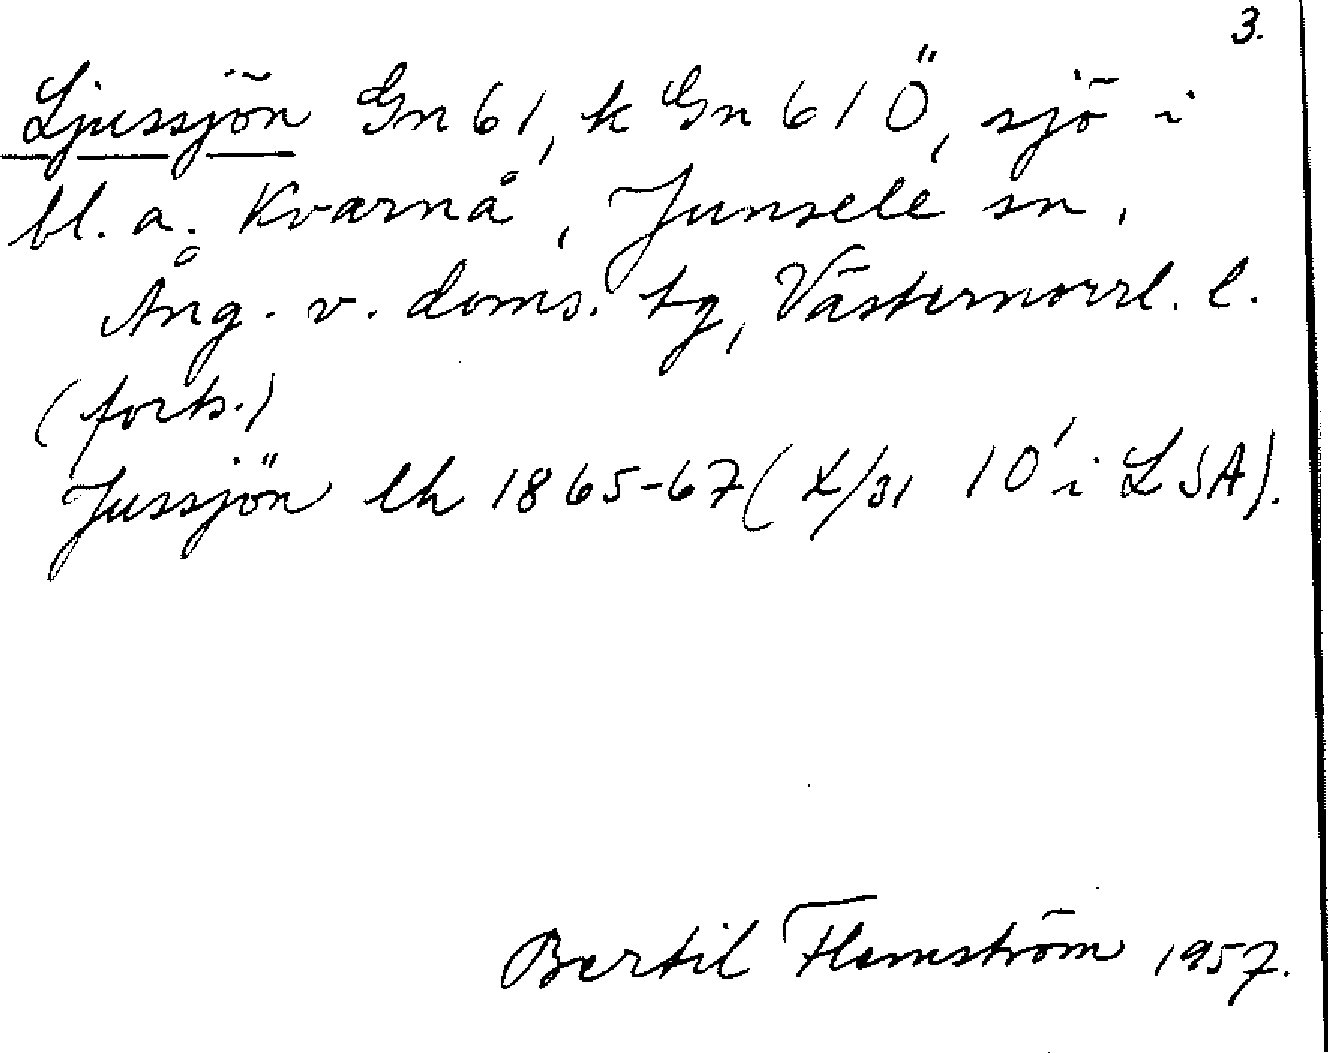 3.
Ljussjön Gn 61, k Gn 61 Ö, sjö i
bl. a. Kvarnå, Junsele sn,
Ång. v. doms. tg, Västernorrl. l.
(forts.)
Jussjön lh 1865-67 (X/31 10' i LSA).
Bertil Flemström 1957.